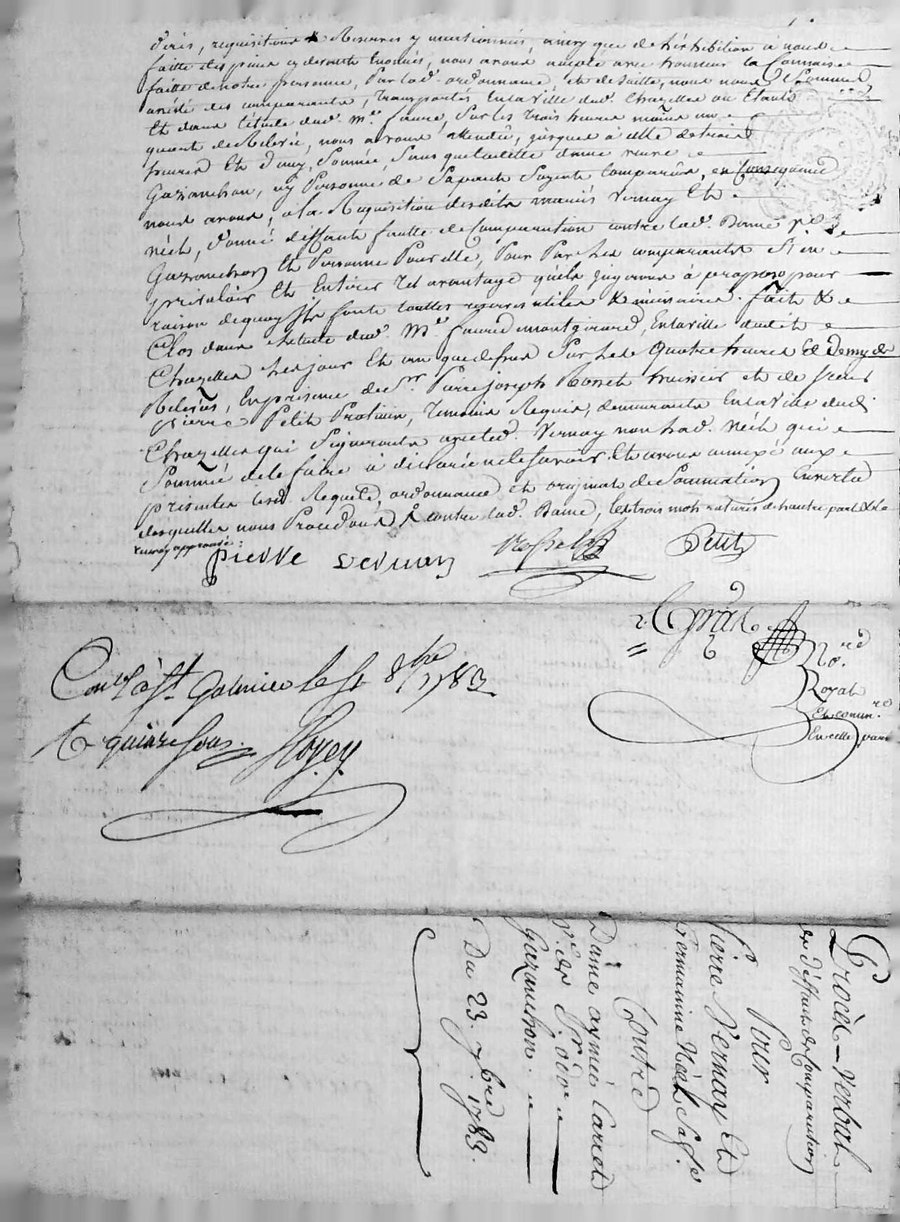 dires, requisitions & Reserves y mentionnés, ainsy que de l'exhibition à nous
faitte des pieces cy dessus Enoncés, nous avons accepté avec honneur la Connaiss
faitte de notre personne, Par lad. ordonnance, et de suitte, nous nous Sommes
assisté des comparants, Transportés En la Ville dud. Chazelles ou Etants
Et dans l'étude dud. Me. faure, Sur les trois heures moins un
quart de Relevé, nous avons attendu, jusques à celle de trois
heures Et demy, Sonnée, Sans que ladette dame veuve
Gazanchon, ny Personne de Sa part Soyent Comparûs, en Consequence
nous avons, a la Requisition desdits mariés Vernay Et
Néel, donné deffaute faute de Comparution contre lad. Dame Ve.
Gazanchon Et Personne Pour elle, Pour Par Les comparants S'en
prevaloir Et En tirer tel avantage qu'ils jugeront à propos pour
raison de quoy Ils font touttes reserves utiles & nécessaires. fait &
Clos dans l'étude dud. Me. faure montgirard, En la ville dudit
Chazelles Les jour Et an que dessus Sur Les Quatre heures Et Demy de
Relevés, En presence de Sr. Pierre joseph Rosset huissier et de sieur
pierre Petit Praticien, Temoins Requis, demeurants En la Ville dud.
Chazelles qui Signeronts avec led. Vernay non lad. Néel qui
Sommé de le faire à déclaré ne le Savoir. Et avons annexé aux
présentes lesd. Requête, ordonnance et original de Sommation En vertu
desquelles nous Procedons & contre lad. Dame, les trois mots raturés de l'autre part &
renvoy approuvés:
pierre vernay Rosset Petit
Nore.
Royal
Et comm.re
En cette partie
Conlé à St. Galmier le 8bre 1783
R quinze sous. Royey
Procès-Verbal
de deffaut de Comparution
Pour
Pierre Vernay Et
Germainne Néel Sa fe.
Contre
Dame aymée Carret
Ve. de Sr.
Gazanchon.
Du 23. 7bre 1783.